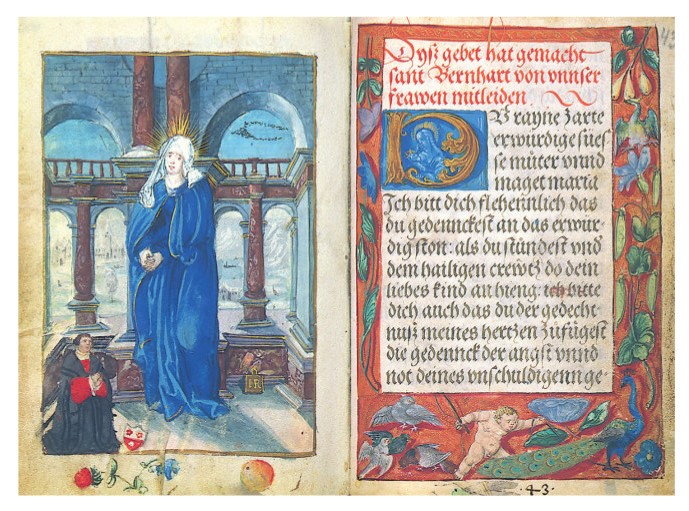 HR
43
Dysz gebet hat gemacht
sant Bernhart von vnnser
frawen mitleiden
DV rayne zarte
erwürdige sües
se müter vnnd
maget maria
Ich bitt dich fleheinlich das
du gedennckest an das erwür
dig ston: als du stündest vnd
dem hailigen crewtz do dein
liebes kind an hieng: ich bitte
dich auch das du der gedecht
nusz meines hertzen zufügest
die gedennck der angst vnnd
not deines vnschuldigenn ge-
.43.